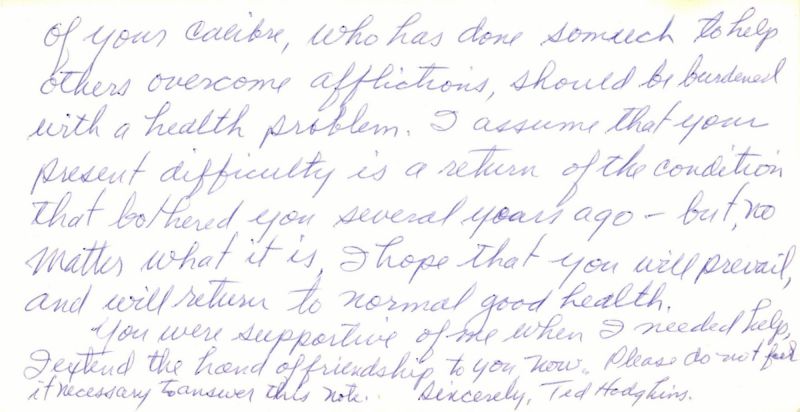 of your calibre, who has done somuch to help
others overcome afflictions, should be burdened
with a health problem. I assume that your
present difficulty is a return of the condition
that bothered you several years ago – but, no
matter what it is, I hope that you will prevail,
and will return to normal good health.
You were supportive of me when I needed help,
I extend the hand of friendship to you now. Please do not feel
it necessary to answer this note. Sincerely, Ted Hodgkins.